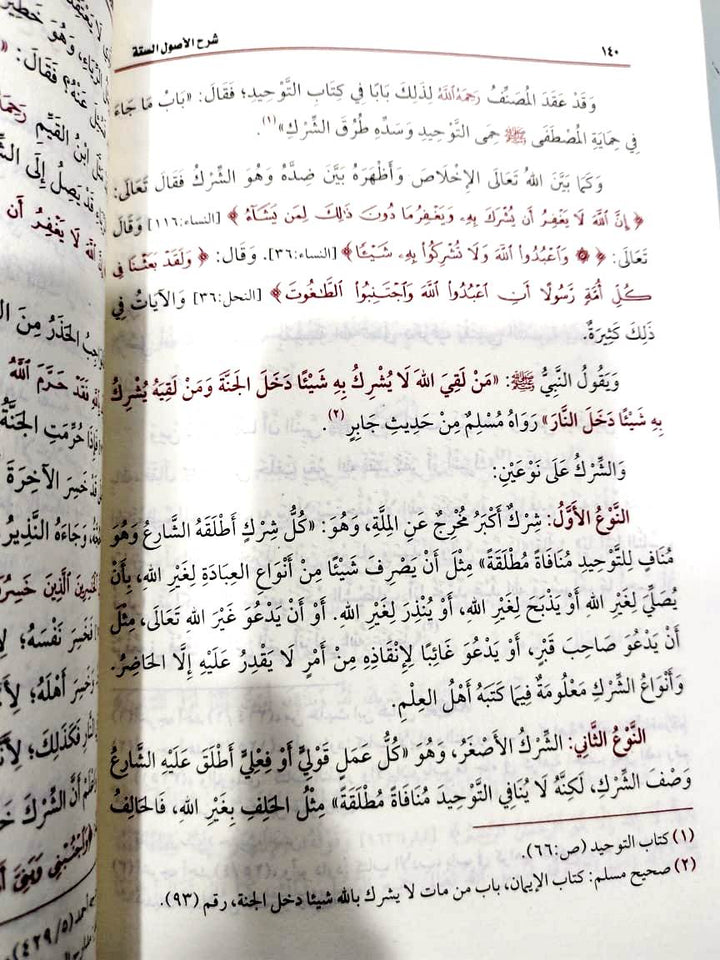 ١٤٠
شرح الأصول الستة
وَقَدْ عَقَدَ المُصَنِّفُ رَحِمَهُ اللَّهُ لِذَلِكَ بَابًا فِي كِتَابِ التَّوْحِيدِ؛ فَقَالَ: «بَابُ مَا جَاءَ
فِي حِمَايَةِ المُصْطَفَى ﷺ حِمَى التَّوْحِيدِ وَسَدِّهِ طُرُقَ الشِّرْكِ»(١).
وَكَمَا بَيَّنَ اللهُ تَعَالَى الإِخْلَاصَ وَأَظْهَرَهُ بَيَّنَ ضِدَّهُ وَهُوَ الشِّرْكُ فَقَالَ تَعَالَى:
﴿ إِنَّ ٱللَّهَ لَا يَغْفِرُ أَن يُشْرَكَ بِهِۦ وَيَغْفِرُ مَا دُونَ ذَٰلِكَ لِمَن يَشَآءُ ﴾ [النساء:١١٦] وَقَالَ
تَعَالَى: ﴿ ۞ وَٱعْبُدُوا۟ ٱللَّهَ وَلَا تُشْرِكُوا۟ بِهِۦ شَيْـًٔا﴾ [النساء:٣٦]. وَقَالَ: ﴿ وَلَقَدْ بَعَثْنَا فِى
كُلِّ أُمَّةٍ رَّسُولًا أَنِ ٱعْبُدُوا۟ ٱللَّهَ وَٱجْتَنِبُوا۟ ٱلطَّٰغُوتَ﴾ [النحل:٣٦] وَالآيَاتُ فِي
ذَلِكَ كَثِيرَةٌ.
وَيَقُولُ النَّبِيُّ ﷺ: «مَنْ لَقِيَ اللهَ لَا يُشْرِكُ بِهِ شَيْئًا دَخَلَ الجَنَّةَ وَمَنْ لَقِيَهُ يُشْرِكُ
بِهِ شَيْئًا دَخَلَ النَّارَ» رَوَاهُ مُسْلِمٌ مِنْ حَدِيثِ جَابِرٍ(٢).
وَالشِّرْكُ عَلَى نَوْعَيْنِ:
النَّوْعُ الأَوَّلُ: شِرْكٌ أَكْبَرُ مُخْرِجٌ عَنِ المِلَّةِ، وَهُوَ: «كُلُّ شِرْكٍ أَطْلَقَهُ الشَّارِعُ وَهُوَ
مُنَافٍ لِلتَّوْحِيدِ مُنَافَاةً مُطْلَقَةً» مِثْلَ أَنْ يَصْرِفَ شَيْئًا مِنْ أَنْوَاعِ العِبَادَةِ لِغَيْرِ اللهِ، بِأَنْ
يُصَلِّيَ لِغَيْرِ اللهِ أَوْ يَذْبَحَ لِغَيْرِ اللهِ، أَوْ يُنْذِرَ لِغَيْرِ اللهِ. أَوْ أَنْ يَدْعُوَ غَيْرَ اللهِ تَعَالَى، مِثْلَ
أَنْ يَدْعُوَ صَاحِبَ قَبْرٍ، أَوْ يَدْعُوَ غَائِبًا لِإِنْقَاذِهِ مِنْ أَمْرٍ لَا يَقْدِرُ عَلَيْهِ إِلَّا الحَاضِرُ.
وَأَنْوَاعُ الشِّرْكِ مَعْلُومَةٌ فِيمَا كَتَبَهُ أَهْلُ العِلْمِ.
النَّوْعُ الثَّانِي: الشِّرْكُ الأَصْغَرُ، وَهُوَ «كُلُّ عَمَلٍ قَوْلِيٍّ أَوْ فِعْلِيٍّ أَطْلَقَ عَلَيْهِ الشَّارِعُ
وَصْفَ الشِّرْكِ، لَكِنَّهُ لَا يُنَافِي التَّوْحِيدَ مُنَافَاةً مُطْلَقَةً» مِثْلُ الحَلِفِ بِغَيْرِ اللهِ، فَالحَالِفُ
(١) كتاب التوحيد (ص:٦٦).
(٢) صحيح مسلم: كتاب الإيمان، باب من مات لا يشرك بالله شيئا دخل الجنة، رقم (٩٣).